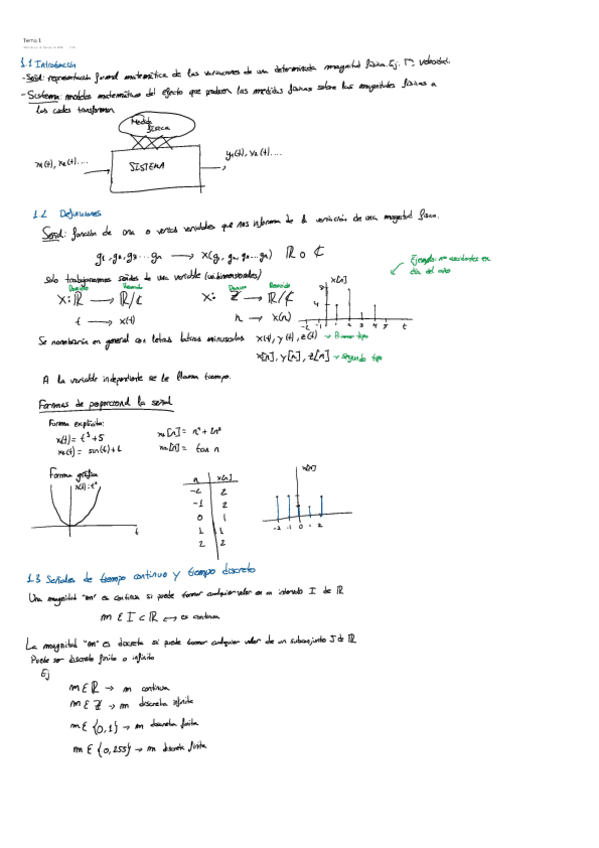 Tema 1
1.1 Introducción
- Señal: representación formal matemática de las variaciones de una determinada magnitud física. Ej. Tª, velocidad.
- Sistema: modelos matemáticos del efecto que producen los medidas físicas sobre las magnitudes físicas a
las cuales transforman
Medida
física
x₁(t), x₂(t)....
SISTEMA
y₁(t), y₂(t)....
1.2 Definiciones
Señal: función de una o varias variables que nos informa de la variación de una magnitud física.
g₁, g₂, g₃ ... gₙ → x(g₁, g₂, g₃...gₙ) ℝ o ℂ
Ejemplo: nº accidentes en
día del año
Solo trabajaremos señales de una variable (unidimensionales)
Dominio Recorrido Dominio Recorrido
X: ℝ → ℝ/ℂ X: ℤ → ℝ/ℂ
t → x(t) n → x(n)
x[n]
4
-2 -1 1 2 3 4 5 t
Se nombraría en general con letras latinas minúsculas x(t), y(t), z(t) → Primer tipo
x[n], y[n], z[n] → segundo tipo
A la variable independiente se le llama tiempo.
Formas de proporcional la señal
Forma explícita:
x(t) = t³ + 5
x₂(t) = sin(t) + t
x₁[n] = n² +
x₂[n] = tan n
Forma gráfica
x(t) = t²
t
n x[n]
-2 2
-1 2
0 1
1 1
2 2
x[n]
-2 -1 0 1 2
1.3 Señales de tiempo continuo y tiempo discreto
Una magnitud "m" es continua si puede tomar cualquier valor en un intervalo I de ℝ
m ∈ I ⊂ ℝ → es continua
La magnitud "m" es discreta si puede tomar cualquier valor de un subconjunto J de ℝ
Puede ser discreto finito o infinito
Ej
m ∈ ℝ → m continua
m ∈ ℤ → m discreta infinita
m ∈ {0,1} → m discreta finita
m ∈ {0,255} → m discreta finita